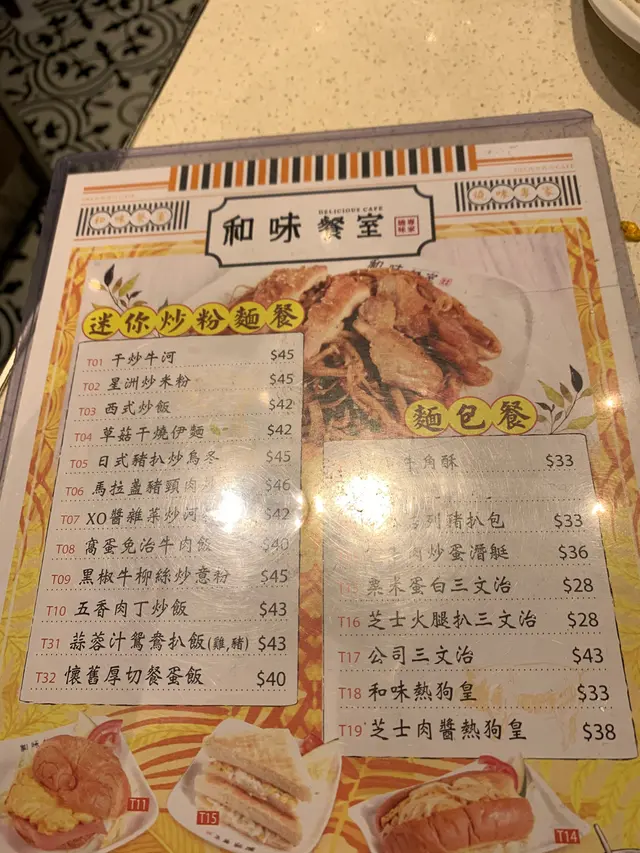 DELICIOUS CAFE
和味餐室
迷你炒粉麵餐
T01 干炒牛河 $45
T02 星洲炒米粉 $45
T03 西式炒飯 $42
T04 草菇干燒伊麵 $42
T05 日式豬扒炒烏冬 $45
T06 馬拉盞豬頸肉 $46
T07 XO醬雜菜炒 $42
T08 窩蛋免治牛肉飯 $40
T09 黑椒牛柳絲炒意粉 $45
T10 五香肉丁炒飯 $43
T31 蒜蓉汁鴛鴦扒飯(雞,豬) $43
T32 懷舊厚切餐蛋飯 $40
麵包餐
牛角酥 $33
列豬扒包 $33
肉炒蛋潛艇 $36
粟米蛋白三文治 $28
T16 芝士火腿扒三文治 $28
T17 公司三文治 $43
T18 和味熱狗皇 $33
T19 芝士肉醬熱狗皇 $38
T11
T15
T14